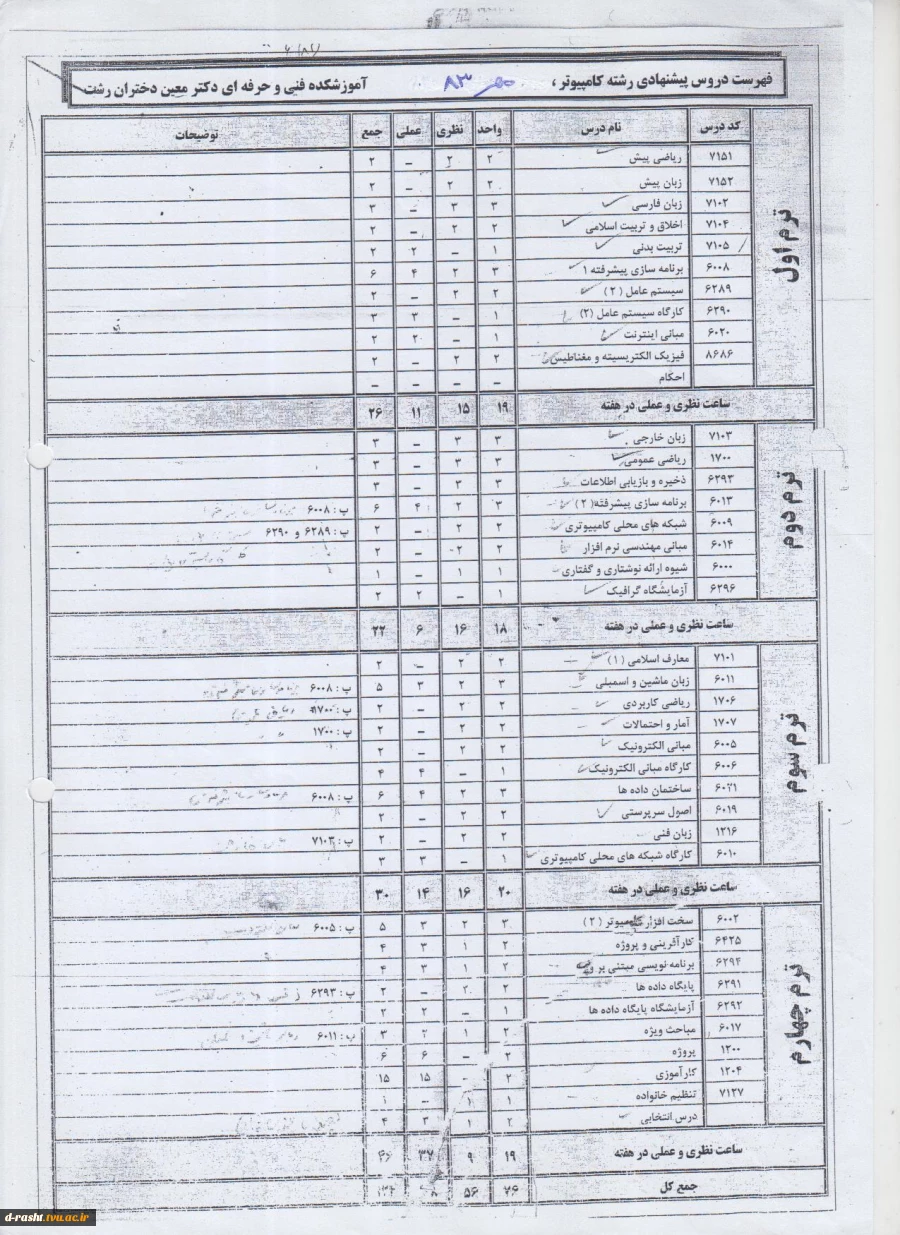 فهرست دروس پیشنهادی رشته کامپیوتر ، مهر ۸۳ آموزشکده فنی و حرفه ای دکتر معین دختران رشت
کد درس نام درس واحد نظری عملی جمع توضیحات
ترم اول
۷۱۵۱ ریاضی پیش ۲ ۲ – ۲
۷۱۵۲ زبان پیش ۲ ۲ – ۲
۷۱۰۲ زبان فارسی ۳ ۳ – ۳
۷۱۰۴ اخلاق و تربیت اسلامی ۲ ۲ – ۲
۷۱۰۵ تربیت بدنی ۱ – ۲ ۲
۶۰۰۸ برنامه سازی پیشرفته ۱ ۳ ۲ ۴ ۶
۶۲۸۹ سیستم عامل (۲) ۲ ۲ – ۲
۶۲۹۰ کارگاه سیستم عامل (۲) ۱ – ۳ ۳
۶۰۲۰ مبانی اینترنت ۱ – ۲ ۲
۸۶۸۶ فیزیک الکتریسیته و مغناطیس ۲ ۲ – ۲
احکام – – – –
ساعت نظری و عملی در هفته ۱۹ ۱۵ ۱۱ ۲۶
ترم دوم
۷۱۰۳ زبان خارجی ۳ ۳ – ۳
۱۷۰۰ ریاضی عمومی ۳ ۳ – ۳
۶۲۹۳ ذخیره و بازیابی اطلاعات ۳ ۳ – ۳
۶۰۱۳ برنامه سازی پیشرفته( ۲ ) ۳ ۲ ۴ ۶ پ : ۶۰۰۸
۶۰۰۹ شبکه های محلی کامپیوتری ۲ ۲ – ۲ پ : ۶۲۸۹ و ۶۲۹۰
۶۰۱۴ مبانی مهندسی نرم افزار ۲ ۲ – ۲
۶۰۰۰ شیوه ارائه نوشتاری و گفتاری ۱ ۱ – ۱
۶۲۹۶ آزمایشگاه گرافیک ۱ – ۲ ۲
ساعت نظری و عملی در هفته ۱۸ ۱۶ ۶ ۲۲
ترم سوم
۷۱۰۱ معارف اسلامی (۱) ۲ ۲ – ۲
۶۰۱۱ زبان ماشین و اسمبلی ۳ ۲ ۳ ۵ پ : ۶۰۰۸
۱۷۰۶ ریاضی کاربردی ۲ ۲ – ۲ پ : ۱۷۰۰
۱۷۰۷ آمار و احتمالات ۲ ۲ – ۲ پ : ۱۷۰۰
۶۰۰۵ مبانی الکترونیک ۲ ۲ – ۲
۶۰۰۶ کارگاه مبانی الکترونیک ۱ – ۴ ۴
۶۰۲۱ ساختمان داده ها ۳ ۲ ۴ ۶ پ : ۶۰۰۸
۶۰۱۹ اصول سرپرستی ۲ ۲ – ۲
۱۲۱۶ زبان فنی ۲ ۲ – ۲ پ : ۷۱۰۳
۶۰۱۰ کارگاه شبکه های محلی کامپیوتری ۱ – ۳ ۳
ساعت نظری و عملی در هفته ۲۰ ۱۶ ۱۴ ۳۰
ترم چهارم
۶۰۰۲ سخت افزار کامپیوتر (۲) ۳ ۲ ۳ ۵ پ : ۶۰۰۵
۶۴۲۵ کارآفرینی و پروژه ۲ ۱ ۳ ۴
۶۲۹۴ برنامه نویسی مبتنی بر ۲ ۱ ۳ ۴
۶۲۹۱ پایگاه داده ها ۲ ۲ – ۲ پ : ۶۲۹۳
۶۲۹۲ آزمایشگاه پایگاه داده ها ۱ – ۲ ۲
۶۰۱۷ مباحث ویژه ۲ ۱ ۲ ۳ پ : ۶۰۱۱
۱۲۰۰ پروژه ۲ – ۶ ۶
۱۲۰۴ کارآموزی ۲ – ۱۵ ۱۵
۷۱۲۷ تنظیم خانواده ۱ ۱ – ۱
درس انتخابی ۲ ۱ ۳ ۴
ساعت نظری و عملی در هفته ۱۹ ۹ ۳۷ ۴۶
جمع کل ۷۶ ۵۶
d-rasht.tvu.ac.ir